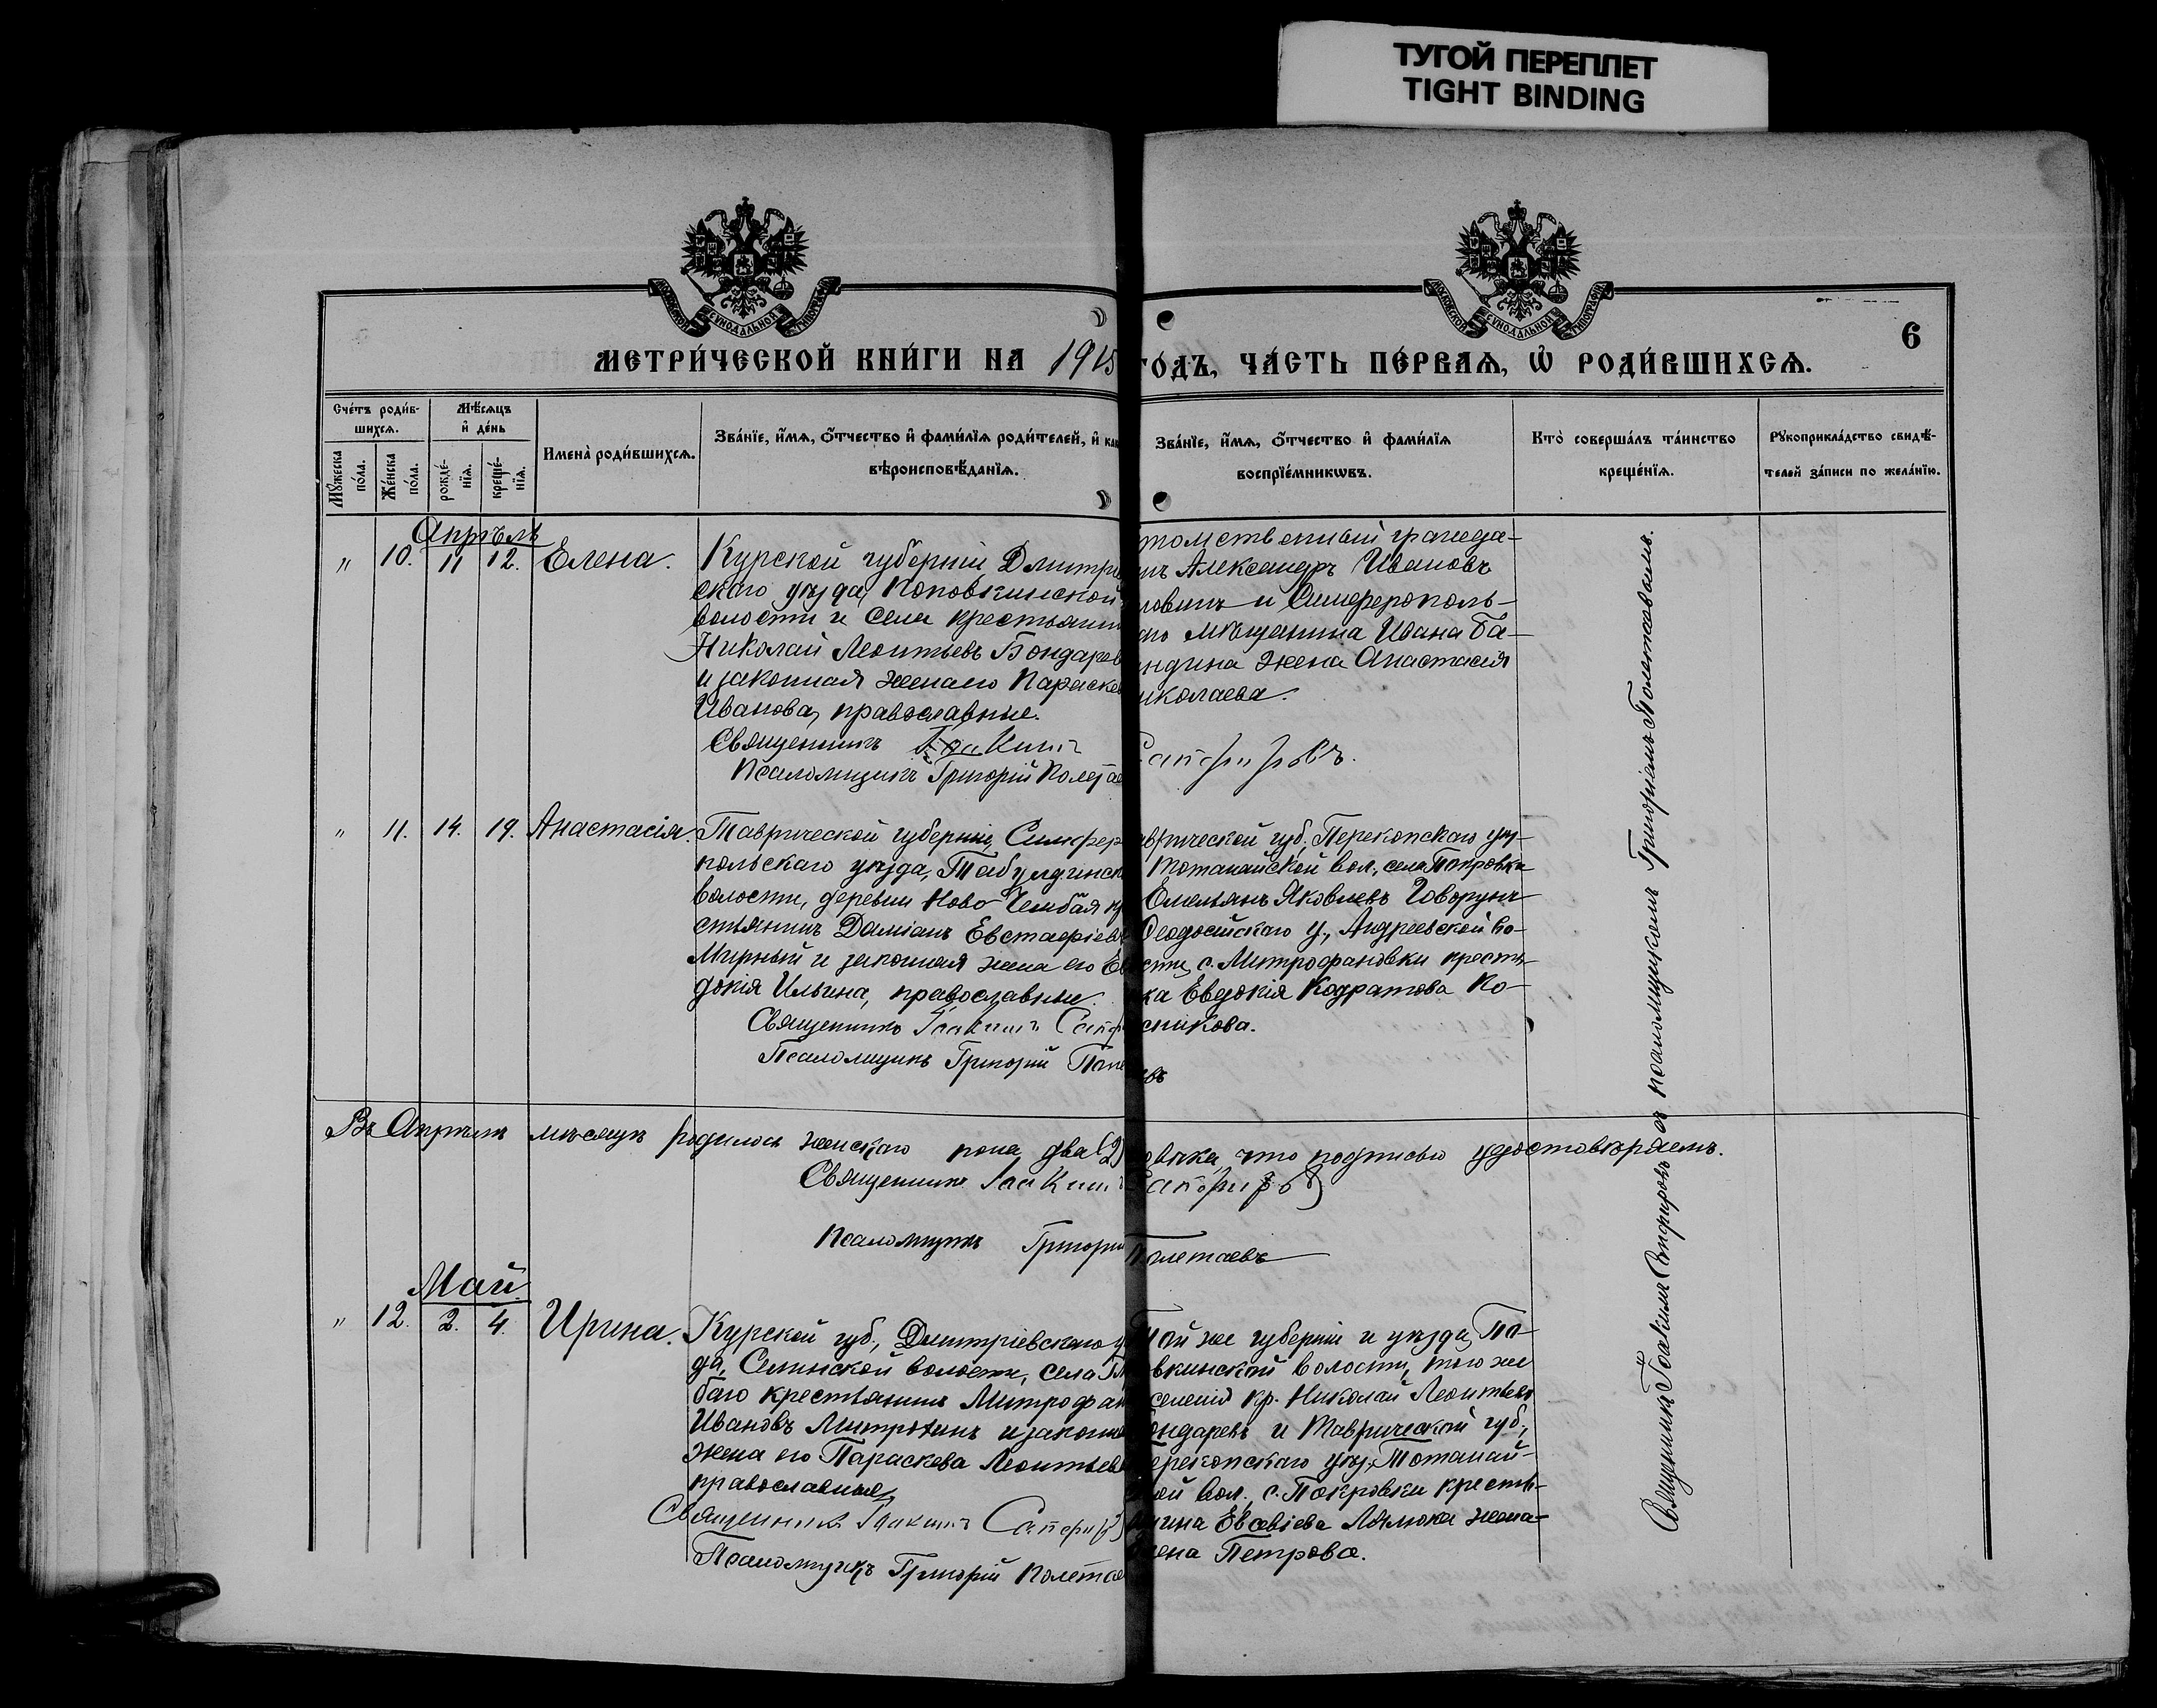 ТУГОЙ ПЕРЕПЛЕТ
TIGHT BINDING
МОСКОВСКОЙ СѴНОДАЛЬНОЙ ТИПОГРАФІИ
МОСКОВСКОЙ СѴНОДАЛЬНОЙ ТИПОГРАФІИ
6
МЕТРИ́ЧЕСКОЙ КНИ́ГИ НА 1915 ГО́ДЪ, ЧА́СТЬ ПЕ́РВАѦ, Ѡ҆ РОДИ́ВШИХСѦ.
Сче́тъ роди́в-
шихсѧ.
Мꙋ́жеска по́ла.
Же́нска по́ла.
Мѣ́сѧцъ
и҆ де́нь
рожде́-
нїѧ.
креще́-
нїѧ.
И҆мена̀ роди́вшихсѧ.
Зва́нїе, и҆́мѧ, ѻ҆́тчество и҆ фами́лїѧ роди́телей, и҆ как
вѣроисповѣ́данїѧ.
Зва́нїе, и҆́мѧ, ѻ҆́тчество и҆ фами́лїѧ
воспрїе́мникѡвъ.
Кто̀ соверша́лъ та́инство
креще́нїѧ.
Рꙋкоприкла́дство свидѣ́-
телей за́писи по жела́нїю.
Апрѣль
" 10. 11 12. Елена.
Курской губерніи Дмитріе
скаго уѣзда, Поповкинской
волости и села крестьянин
Николай Леонтьевъ Бондарев
и законная жена его Параскев
Иванова, православные.
Священникъ Іоакимъ
Псаломщикъ Григорій Полетае
томственный гражда-
инъ Александръ Ивановъ
ловинъ и Симферополь-
аго мѣщанина Ивана Ба-
ндина жена Анастасія
иколаева.
Сапфировъ.
" 11. 14. 19. Анастасія.
Таврической губерніи, Симферо
польскаго уѣзда, Табулдинск
волости, деревни Ново-Чембай кр
стьянинъ Даміанъ Евстафіевъ
Мирный и законная жена его Ев
докія Ильина, православные.
Священникъ Іоакимъ Сапф
Псаломщикъ Григорій Поле
аврической губ., Перекопскаго уѣз-
Тотанайской вол., села Покровка
Емельянъ Яковлевъ Говорунъ
Ѳеодосійскаго у., Андреевской во-
сти, с. Митрофановки кресть-
ка Евдокія Кодратова Ко-
сникова.
евъ
Въ Апрѣлѣ мѣсяцѣ родилось женскаго пола два (2) овѣка, что подписью удостовѣряемъ.
Священникъ Іоакимъ Сапфировъ
Псаломщикъ Григорій Полетаевъ
Май.
" 12. 2. 4. Ирина.
Курской губ., Дмитріевскаго у
да, Селинской волости, села
баго крестьянинъ Митрофан
Ивановъ Митрохинъ и законна
жена его Параскева Леонтьева
православные.
Священникъ Іоакимъ Сапфиръ
Псаломщикъ Григорій Полетае
Той же губерніи и уѣзда, По-
вкинской волости, того же
селенія кр. Николай Леонтьевъ
Бондаревъ и Таврической губ.,
Перекопскаго уѣз., Тотанай-
кой вол., с. Покровки кресть-
нина Евсевіева жена
лена Петрова.
Священникъ Іоакимъ Сапфировъ съ псаломщикомъ Григоріемъ Полетаевымъ.